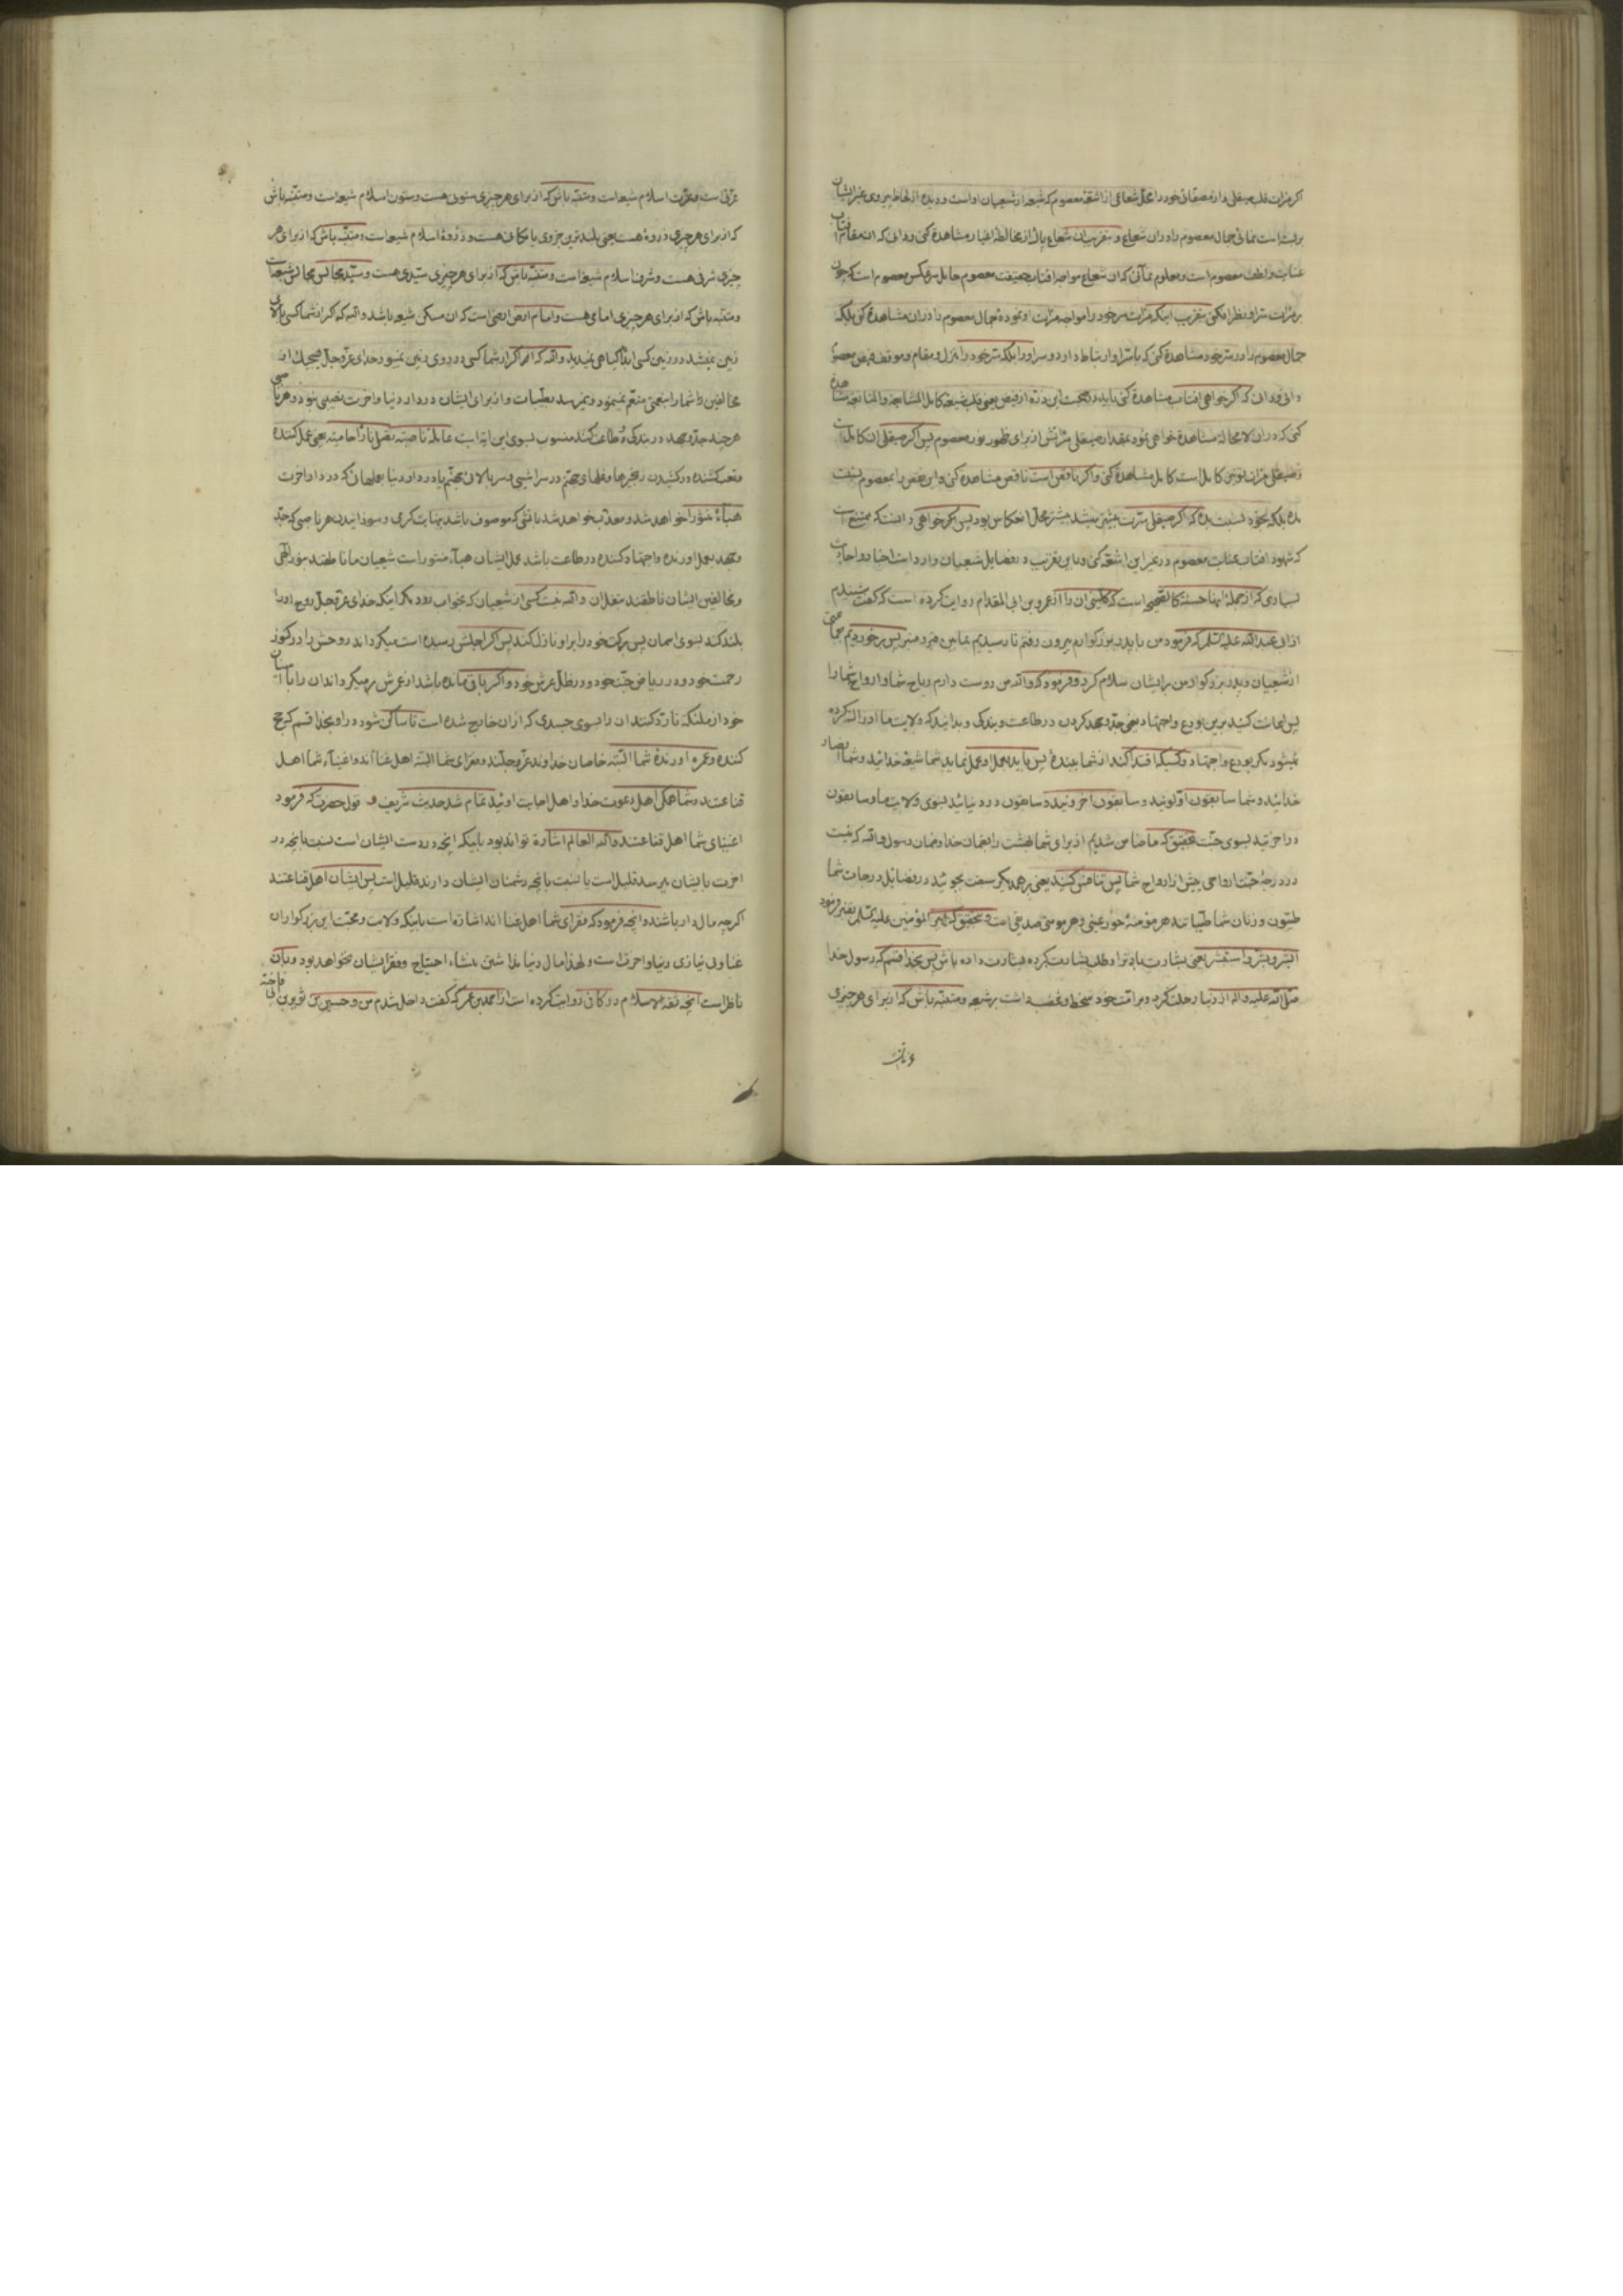 اکر مرات قلب صیقلی دار مصفائی خود را محل شعاعی از اشعّه معصوم که شیعه از شیعیان او است و دیده از لحاظ پیروی غیر ایشان
بربسته است نمائی جمال معصوم را در ان شعاع و بتقریب ان شعاع پاک از مخالطه اغیار مشاهدهٔ کنی و دانی که ان مقام افتاب
عنایت و لطف معصوم است و معلوم نمائی که ان شعاع مواجه افتاب حقیقت معصوم حامل سر عکس معصوم است که چون
بر مرات سر او نظر افکنی بتقریب اینکه مرات سر خود را مواجه مرات او نمودهٔ جمال معصوم را در ان مشاهدهٔ کنی بلکه
جمال معصوم را در سر خود مشاهدهٔ کنی که با سر او ارتباط دارد و سر او را بلکه سر خود را منزل و مقام و موقف فیض معصوم
دانی و دانی که اکر خواهی افتاب مشاهدهٔ کنی باید در جهت این ذرّه از فیض یعنی قلب شیعه کامل المشایعه و المتابعه مشاهدهٔ
کنی که در ان لا محاله مشاهدهٔ خواهی نمود بمقدار صیقلی مراتش از برای ظهور نور معصوم پس اکر صیقلی ان کامل است
و صیقلی مرات تو نیز کامل است کامل مشاهدهٔ کنی و اکر ناقص است ناقص مشاهدهٔ کنی و این نقص را بمعصوم نسبت
مده بلکه بخود نسبت بده که اکر صیقلی سرت بیشتر میشد بیشتر محل انعکاس بود پس اکر خواهی دانست که ممتنع است
که شهود افتاب عنایت معصوم در غیر این اشعّه کنی و باین تقریب در فضایل شعیان وارد است اخبار و احادیث
بسیاری که از جمله انها حسنهٔ کالصحیحی است که کلینی ان را از عمرو بن ابی المقدام روایت کرده است که کفت شنیدم
از ابی عبد الله علیه السلم که فرمود من با پدر بزرکوارم بیرون رفتم تا رسیدیم بمابین قبر و منبر پس برخوردیم بجماعتی
از شعیان و پدر بزرکوار من بر ایشان سلام کرد و فرمود که والله من دوست دارم ریاح شما و ارواح شما را
پس اعانت کنید برین بورع و اجتهاد یعنی جدّ و جهد کردن در طاعت و بندکی و بدانید که ولایت ما ادراک کرده
نمیشود مکر بورع و اجتهاد و کسیکه اقتدا کند از شما ببندهٔ پس باید بعمل او عمل نماید شما شیعهٔ خدائید و شما انصار
خدائید و شما سابقون اوّلونید و سابقون اخرونید و سابقون در دنیائید بسوی ولایت ما و سابقون
در اخرتید بسوی جنّت بتحقیق که ما ضامن شدیم از برای شما بهشت را بضمان خدا و ضمان رسول والله که نیست
در درجهٔ جنّت ارواحی بیش از ارواح شما پس تنافس کنید یعنی بر همدیکر سبقت بجوئید در فضایل درجات شما
طیّبون و زنان شما طیّباتند هر مؤمنهٔ حور عینی و هر مومنی صدیقی است و بتحقیق که امیر المؤمنین علیه السلم بقنبر فرمود
ابشر و بشّر و استبشر یعنی بشارت باد ترا و طلب بشارت کرده بشارت داده باش پس بخدا قسم که رسول خدا
صلّی الله علیه و اله از دنیا رحلت کرد و بر امّت خود سخط و غضب داشت بر شیعه و متنبّه باش که از برای هر چیزی
عزّتی است
عزّتی است و عزّت اسلام شیعه است و متنبّه باش که از برای هر چیزی ستونی هست و ستون اسلام شیعه است و متنبّه باش
که از برای هر چیزی ذروهٔ هست یعنی بلندترین جزوی یا مکانی هست و ذروهٔ اسلام شیعه است و متنبّه باش که از برای هر
چیزی شرفی هست و شرف اسلام شیعه است و متنبّه باش که از برای هر چیزی سیّدی هست و سیّد مجالس مجالس شیعه است
و متنبّه باش که از برای هر چیزی امامی هست و امام ارض ارضی است که ان مسکن شیعه باشد والله که اکر از شما کسی بالای
زمین نمیشد در زمین کسی ابداً کیاهی نمیدید والله که اکر از شما کسی در روی زمین نمیبود خدای عزّ و جلّ هیچیک از
مخالفین را شما را بنعمتی متنعم نمینمود و نمیرسد بطیّبات و از برای ایشان در دار دنیا و اخرت نصیبی نبود و هر ناصبی
هر چند جدّ و جهد در بندکی و طاعت کند منسوب بسوی این ایه است عاملة ناصبة تصلی ناراً حامیة یعنی عمل کننده
و تعب کشنده در کشیدن زنجیرها و غلهای جهنّم در سراشیبی و سر بالای جهنّم یا در دار دنیا بعملهائی که در دار اخرت
هباءً منثورا خواهد شد و معذّب خواهد شد باتشی که موصوف باشد بنهایت کرمی و سوزانیدن هر ناصبی که جدّ
و جهد بعمل اورنده و اجتهاد کننده در طاعت باشد عمل ایشان هباء منثور است شعیان ما ناطقند بنور الهی
و مخالفین ایشان ناطقند بتفلّت والله نیست کسی از شعیان که بخواب رود مکر اینکه خدای عزّ و جلّ روح او را
بلند کند بسوی اسمان پس برکت خود را بر او نازل کند پس اکر اجلش رسیده است میکرداند روحش را در کنوز
رحمت خود و در ریاض جنّت خود و در ظلّ عرش خود و اکر باقی مانده باشد از عرش بر میکرداند ان را با امینان
خود از ملئکه تا ردّ کنند ان را بسوی جسدی که از ان خارج شده است تا ساکن شود در او بخدا قسم که حج
کننده و عمره اورندهٔ شما البتّه خاصان خداوند عزّ و جلّند و فقرای شما البتّه اهل غنا اند و اغنیاء شما اهل
قناعتند و شما همکی اهل دعوت خدا و اهل اجابت اوئید تمام شد حدیث شریف و قول حضرت که فرمود
اغنیای شما اهل قناعتند والله العالم اشاره تواند بود باینکه انچه در دست ایشان است نسبت بانچه در
اخرت بایشان میرسد قلیل است یا نسبت بانچه دشمنان ایشان دارند قلیل است پس ایشان اهل قناعتند
اکرچه مال دار باشند و انچه فرمود که فقرای شما اهل غنا اند اشاره است باینکه ولایت و محبّت این بزرکواران
غنا و بی نیازی دنیا و اخرت است و لهذا مال دنیا نداشتن منشاء احتیاج و فقر ایشان نخواهد بود و بان
ناظر است انچه ثقة الاسلام در کافی روایت کرده است از احمد بن عمر که کفت داخل شدم من و حسین بن ثویر بن ابی فاخته